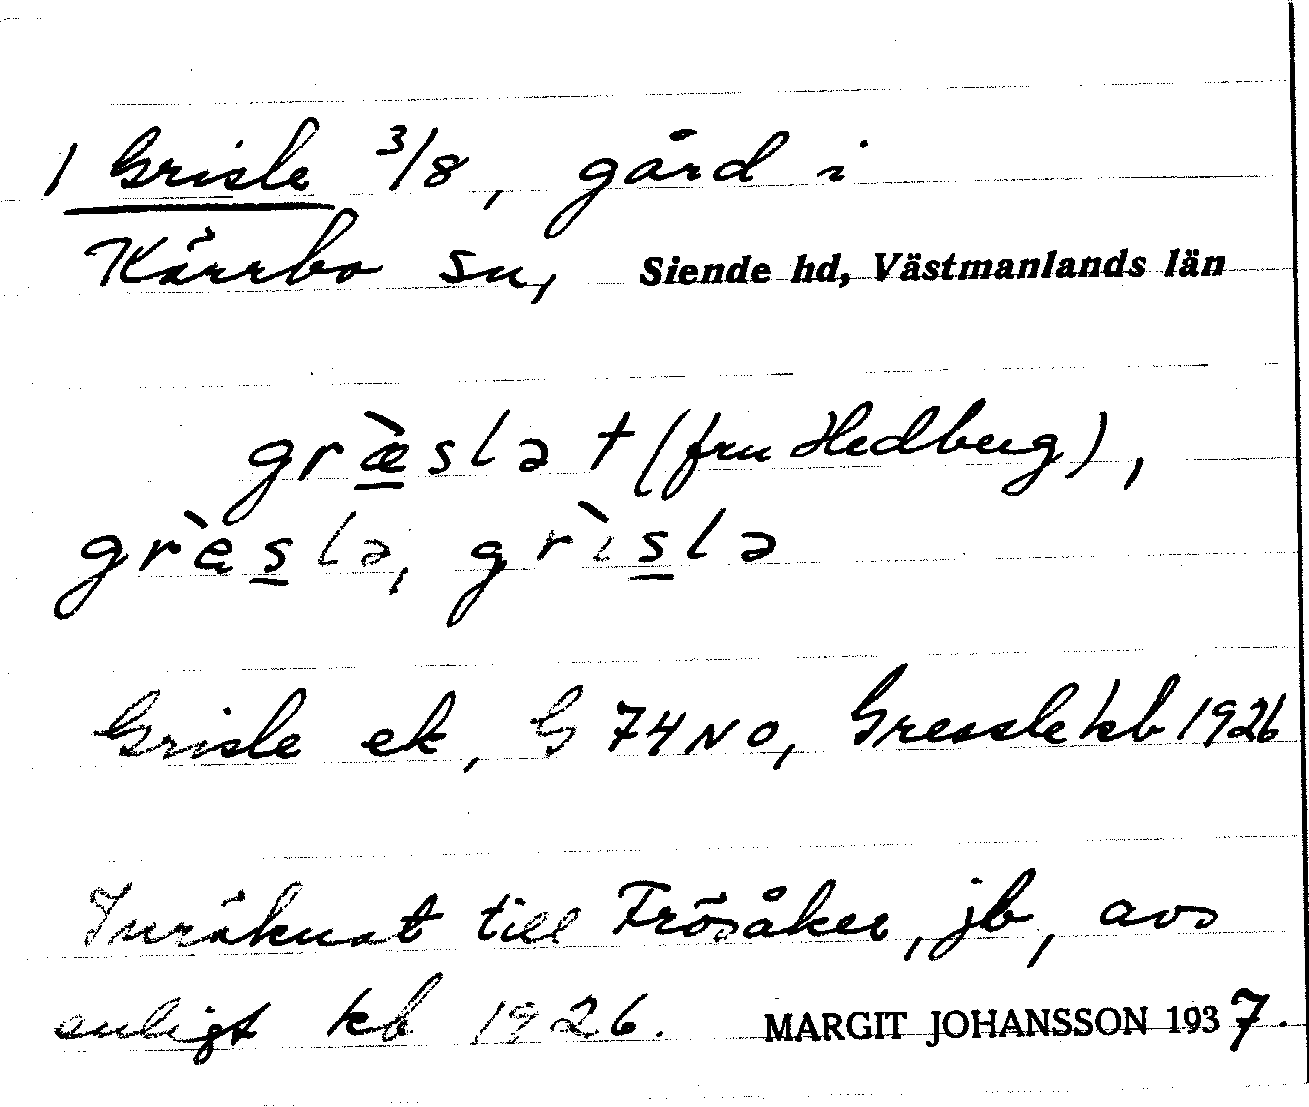 1 Grisle 3/8, gård i
Kärrbo sn, Siende hd, Västmanlands län
græ̀slə † (fru Hedberg),
grèslə, grìslə
Grisle ek, G 74 NO, Gressle kb 1926
Inräknat till Frösåker, jb, avs
enligt kb 1926. MARGIT JOHANSSON 1937.